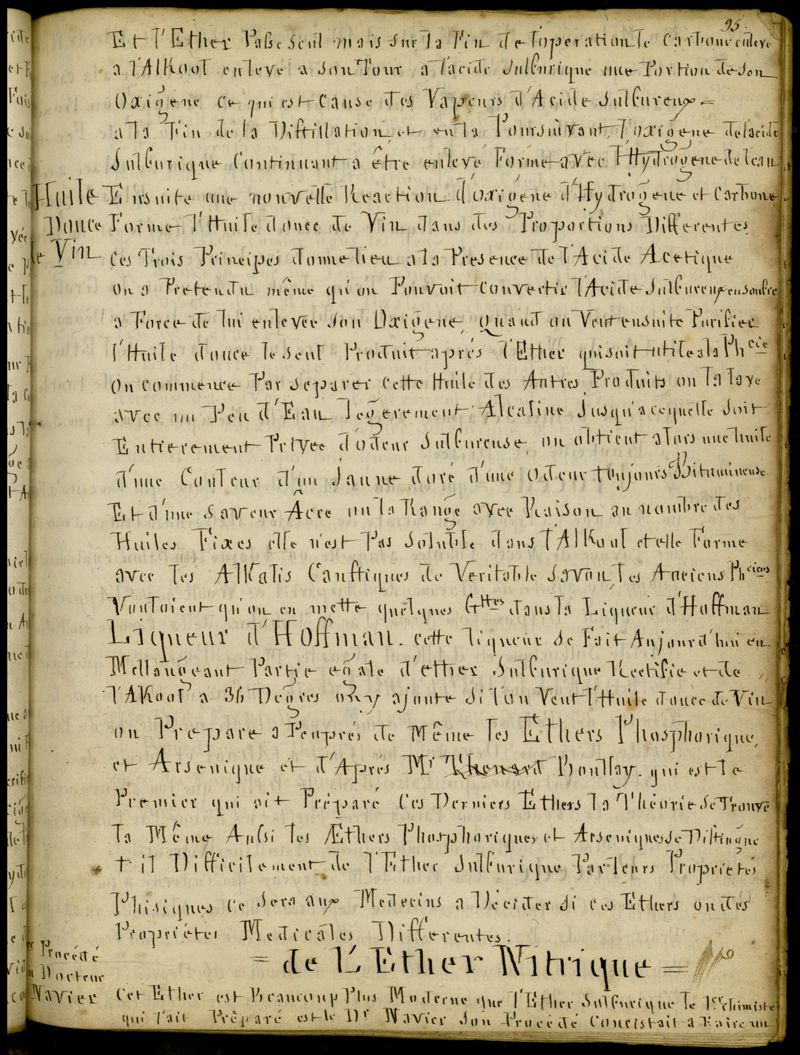 95.
Et l'Ether Passe Seul mais sur la Fin de l'operation le Carbone enleve
a l'Alkool enleve a son Tour a l'acide Sulfurique une Portion de son
Oxigene ce qui est Cause des Vapeurs d'Acide Sulfureux =
a la Fin de la Distillation et en la Poursuivant l'oxigene de l'acide
Sulfurique Continuant a être enlevé Forme avec l'Hydrogene de l'eau
Huile Ensuite une nouvelle Reaction d'oxigene d'Hydrogene et Carbone
Douce Forme l'Huile douce de Vin dans des Proportions Differentes
de Vin Ces Trois Principes donne lieu a la Presence de l'Acide Acetique
on a Pretendu même qu'on Pouvoit Convertir l'Acide Sulfureux en Soufre
a Force de lui enlever son Oxigene quand on Veut ensuite Purifier
l'Huile douce le seul Produit après l'Ether qui soit utile a la Phcie
On Commence Par Separer Cette Huile des Autres Produits on la lave
avec un Peu d'Eau legerement Alcaline Jusqu'a ce quelle soit
Entierement Privée d'odeur Sulfureuse on obtient alors une huile
d'une Couleur d'un Jaune doré d'une odeur toujours Bitumineuse
Et d'une Saveur Acre on la Range avec Raison au nombre des
Huiles Fixes elle n'est Pas Soluble dans l'Alkool et elle Forme
avec les Alkalis Caustiques de Veritable Savon les Anciens Phciens
Vouloient qu'on en mette quelques Gttes dans la Liqueur d'Hoffman
Liqueur d'Hoffman. cette liqueur se Fait Aujourd'hui en
Mellangeant Partie egale d'ether Sulfurique Rectifié et de
l'Alkool a 36 Degres on y ajoute si l'on Veut l'Huile douce de Vin
on Prepare a Peuprés de Même les Ethers Phosphorique,
et Arsenique et d'Aprés Mr Boullay. qui est le
Premier qui ait Préparé Ces Derniers Ethers la Théorie Se Trouve
la Même Aussi les Æthers Phosphoriques et Arseniques se Distingue
t il Difficilement de l'Ether Sulfurique Par leurs Proprietés
Phisiques ce sera aux Medecins a Decider si ces Ethers ont des
Propriétes Medicales Differentes.
= de L'Ether Nitrique =
Procédé
Docteur
Navier Cet Ether est Beaucoup Plus Moderne que l'Ether Sulfurique le 1er chimiste
qui l'ait Préparé est le Dr Navier Son Procédé Concistait a Faire un